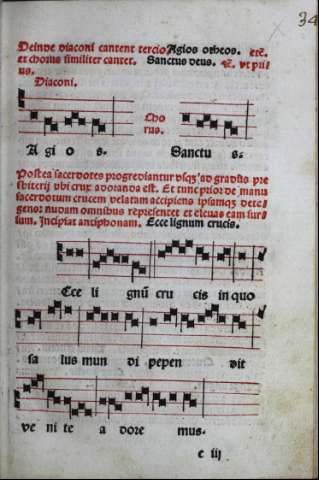 34
Deinde diaconi cantent tercio Agios otheos. etc̄.
et chorus similiter cantet. Sanctus deus. etc̄. vt pri
us.
Diaconi.
Cho
rus.
A gi o s. Sanctu s.
Postea sacerdotes progrediantur vsqz ad gradus pre
sbiterij vbi crux adoranda est. Et tunc prior de manu
sacerdotum crucem velatam accipiens ipsamqz dete
gens: nudam omnibus representet et eleuas eam sur
sum. Incipiat antiphonam. Ecce lignum crucis.
Ecce li gnū cru cis in quo
sa lus mun di pepen dit
ve ni te a dore mus.
e iij